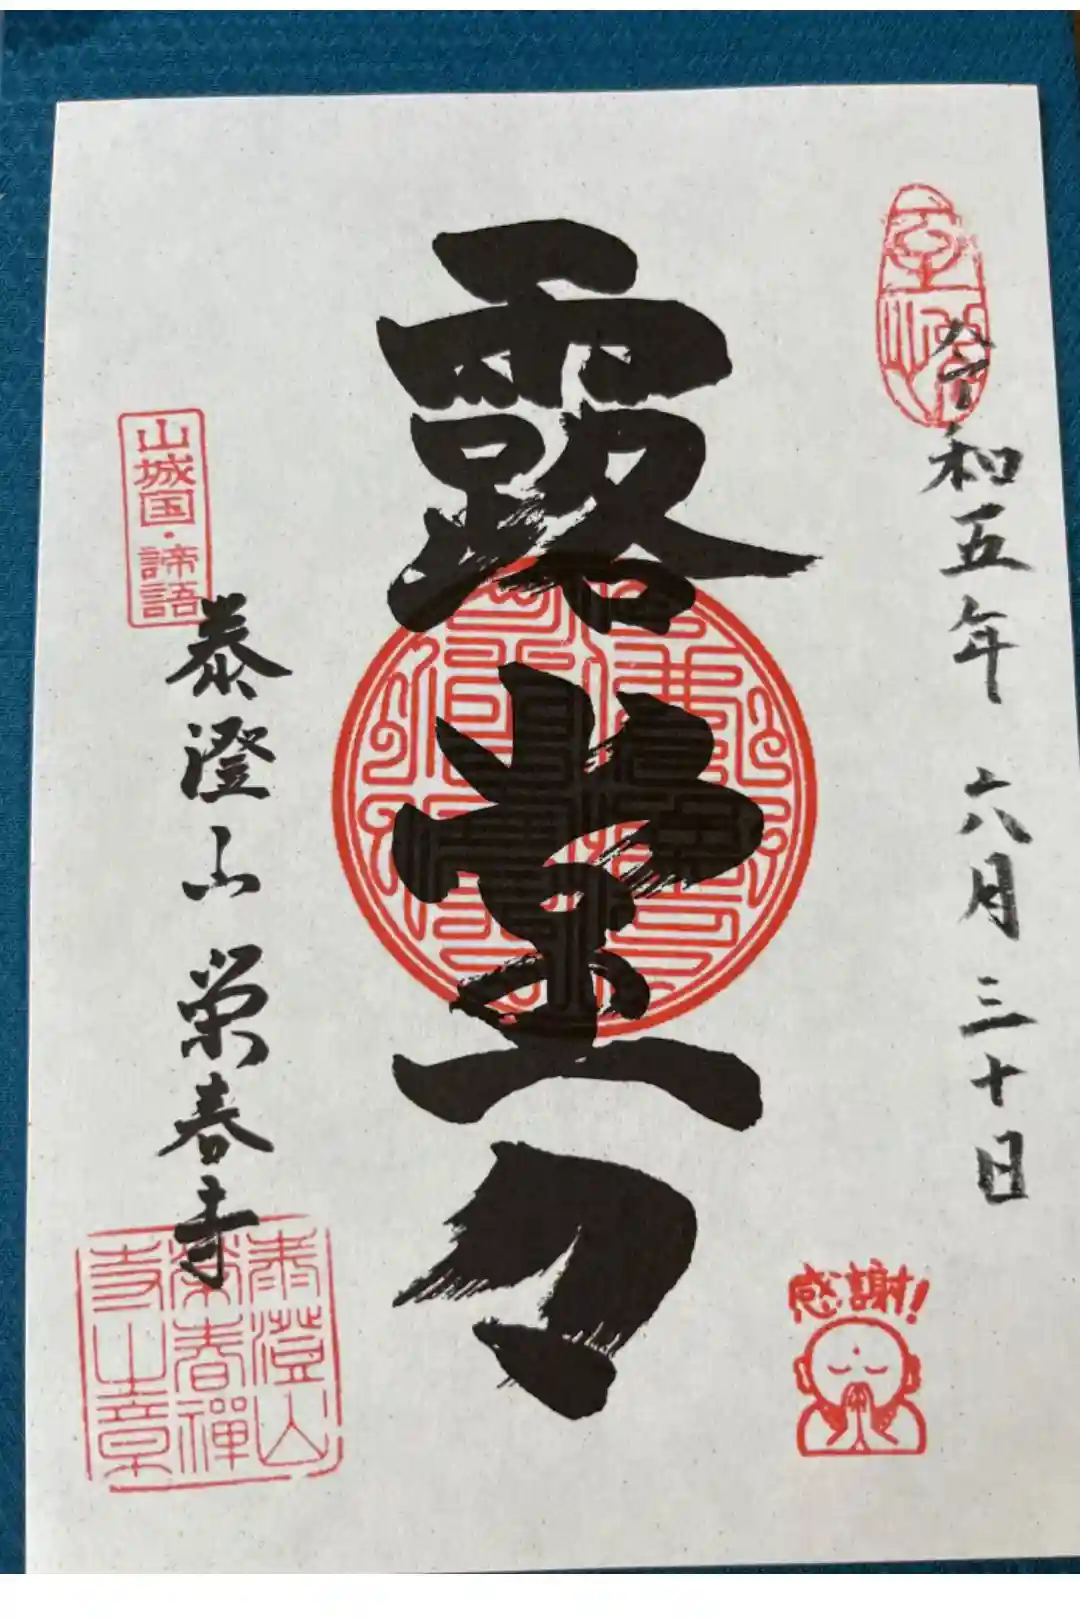 令和五年 六月三十日
感謝!
露堂々
山城国・諦語
泰澄山 栄春寺
泰澄山
栄春禅
寺之章